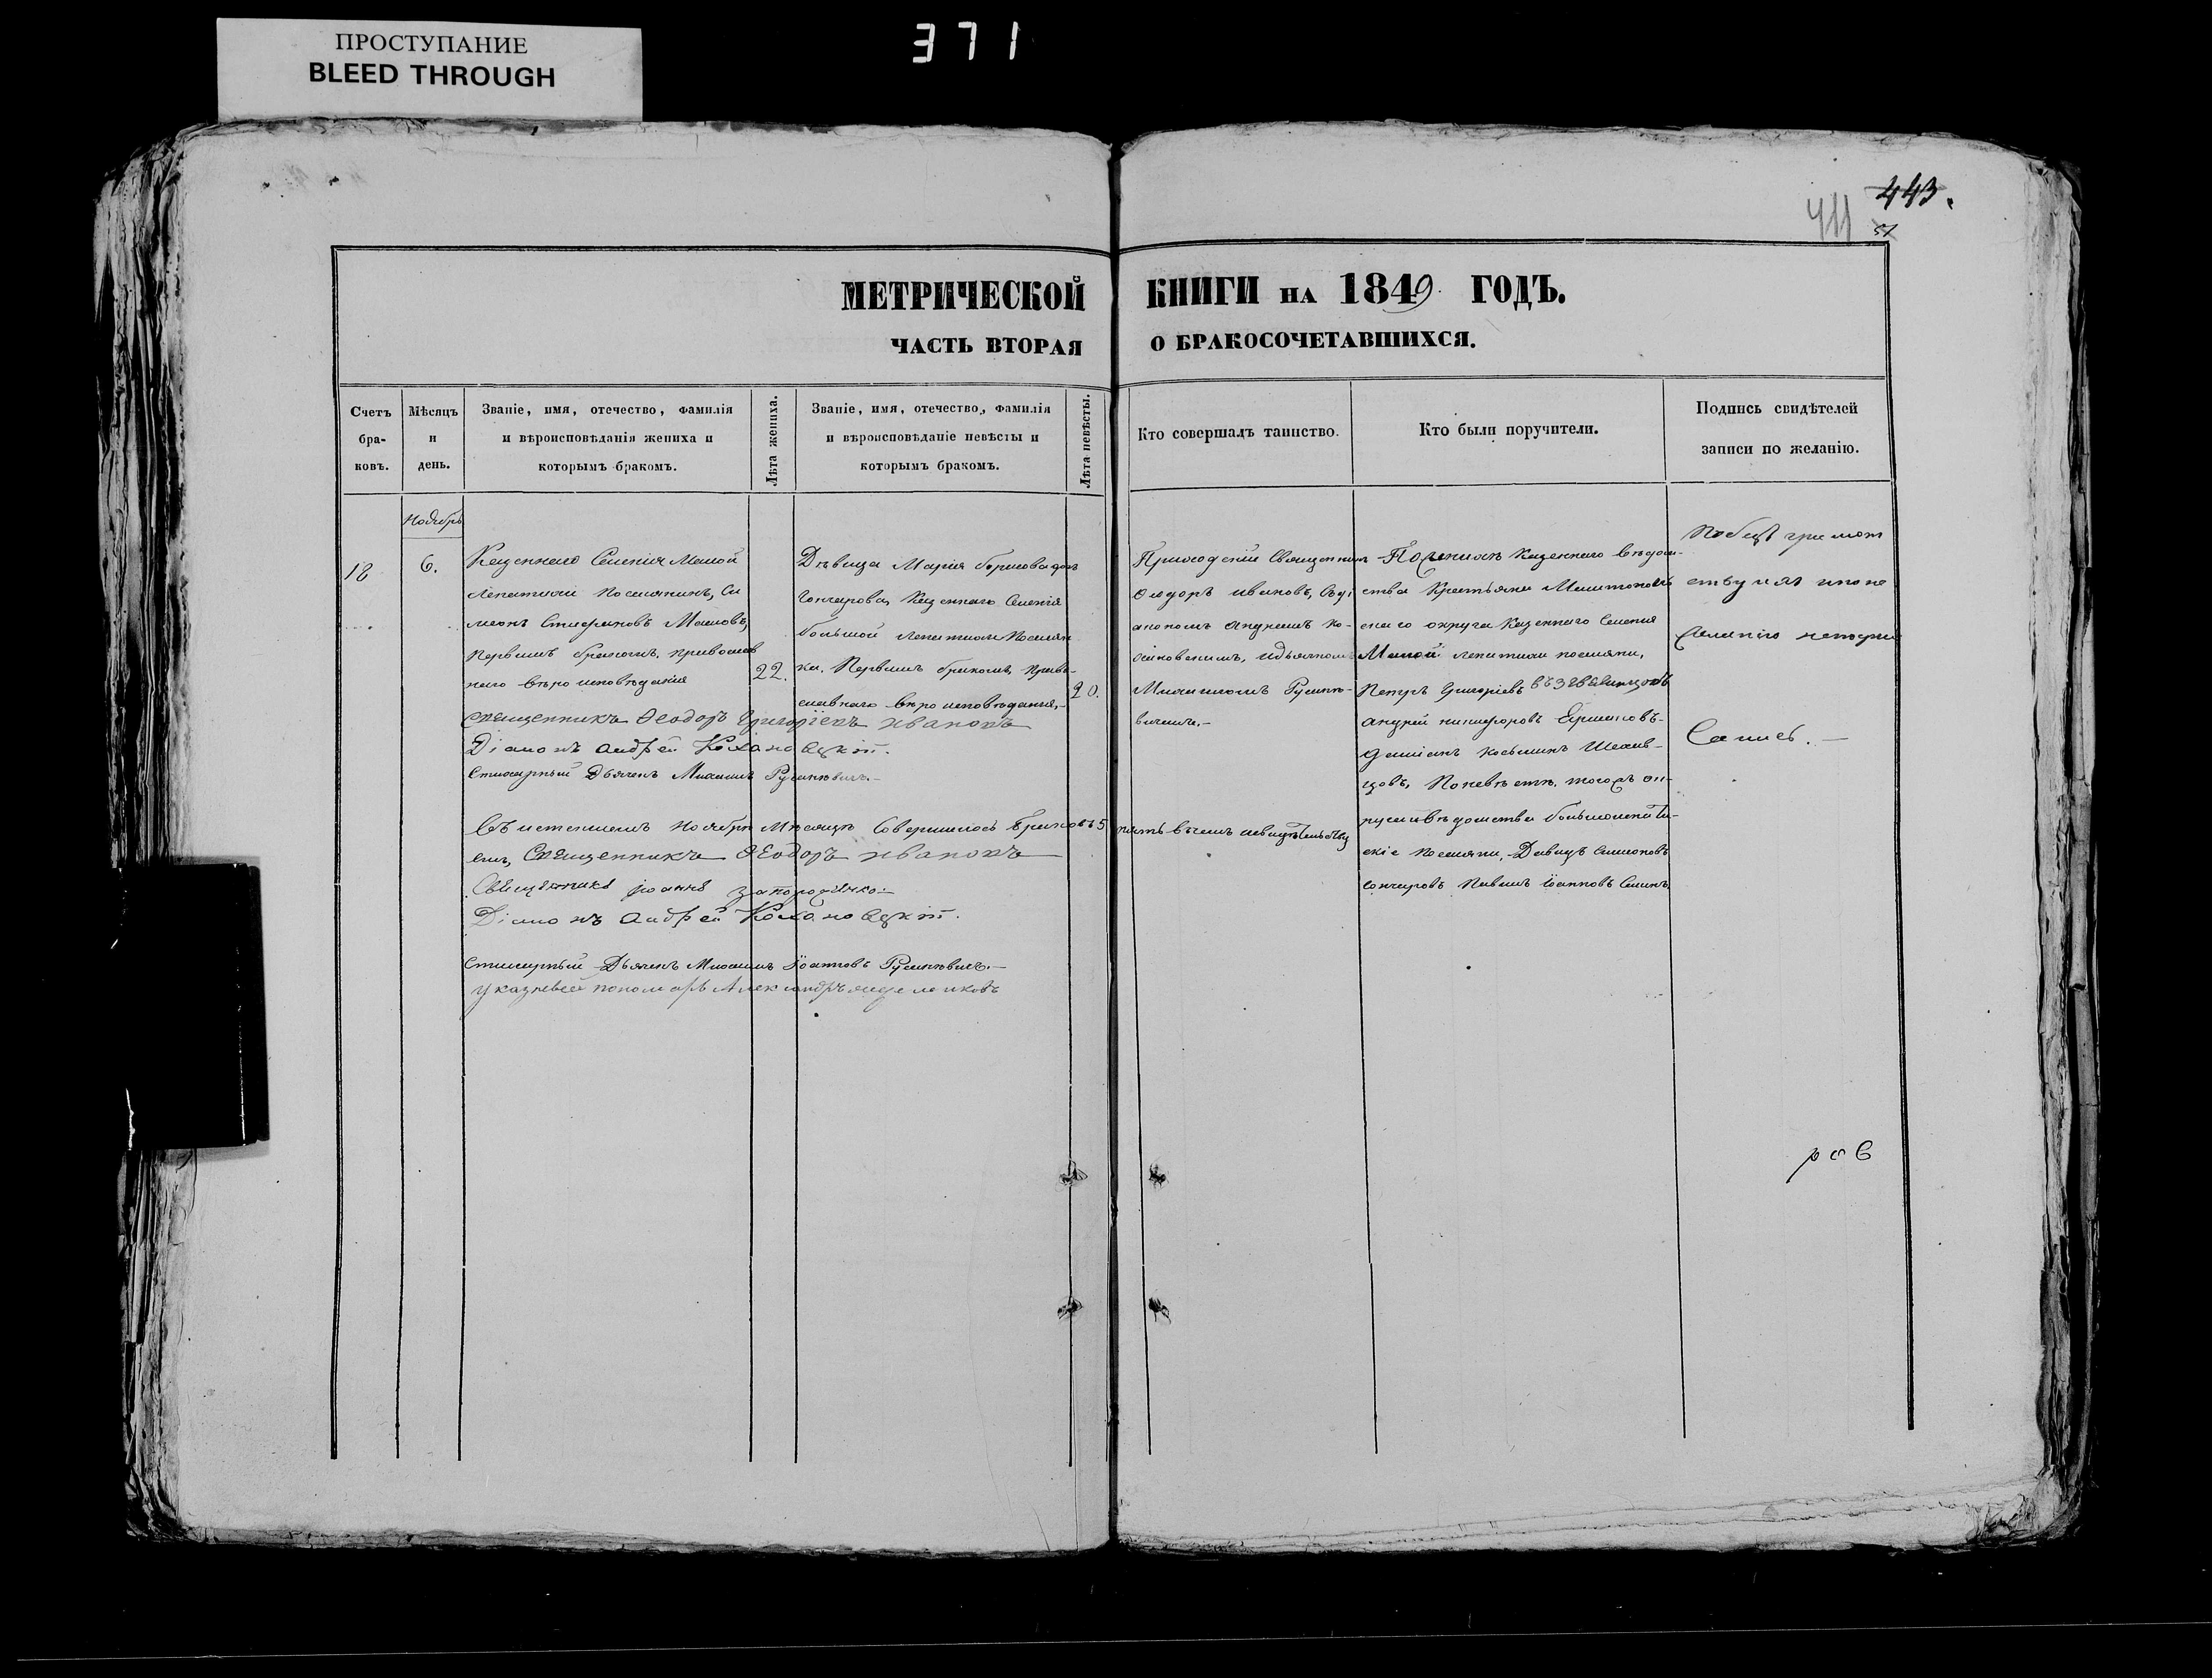 ПРОСТУПАНИЕ
BLEED THROUGH
371
443.
411
МЕТРИЧЕСКОЙ КНИГИ НА 1849 ГОДЪ.
ЧАСТЬ ВТОРАЯ О БРАКОСОЧЕТАВШИХСЯ.
Счетъ
бра-
ковъ.
Мѣсяцъ
и
день.
Званіе, имя, отечество, фамилія
и вѣроисповѣданія жениха и
которымъ бракомъ.
Лѣта жениха.
Званіе, имя, отечество, фамилія
и вѣроисповѣданіе невѣсты и
которымъ бракомъ.
Лѣта невѣсты.
Кто совершалъ таинство.
Кто были поручители.
Подпись свидѣтелей
записи по желанію.
Ноябрь
18
6.
Казеннаго Селенія Малой
Лепатихи поселянинъ, Си
меонъ Стефановъ
Первымъ бракомъ. православ
наго вѣроисповѣданія
22.
Дѣвица Марія Борисова дочь
Гончарова, Казеннаго Селенія
большой Лепатихи Поселян
ка. Первымъ бракомъ, Право-
славнаго вѣроисповѣданія,-
20.
Приходскій Священникъ
Ѳеодоръ Ивановъ, съ ді
акономъ Андреемъ Ко-
хановскимъ, и дьячкомъ
Михаиломъ Русинке-
вичемъ.-
Казеннаго вѣдом-
ства Крестьяне Мелитополь
скаго округа Казеннаго Селенія
Малой Лепатихи поселяни,
Петръ Григоріевъ
Андрей Никифоровъ
Даміанъ Косьминъ
По невѣстѣ. того жъ ок-
руга и вѣдомства большолепати-
скіе поселяни, Давидъ Симоновъ
Гончаровъ Павелъ Іоанновъ
священникъ Ѳеодоръ Григоріевъ Ивановъ
Діаконъ Андрей Кохановскій.
Стихарный Дьячекъ Михаилъ Русинкевичъ.-
Въ истекшемъ Ноябрѣ Мѣсяцѣ Совершилось Браковъ 5 пять въ чемъ и свидѣтельству
емъ, Священникъ Ѳеодоръ Ивановъ
Священникъ Іоаннъ
Діаконъ Андрей Кохановскій.
Стихарный Дьячекъ Михаилъ Іоанновъ Русинкевичъ.-
указный пономарь Александръ